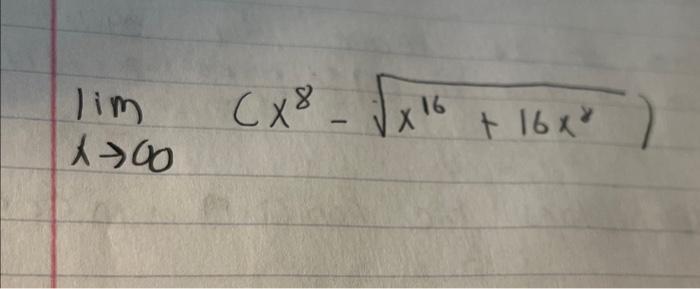 lim (x⁸ - √(x¹⁶ + 16x⁸))
x→∞